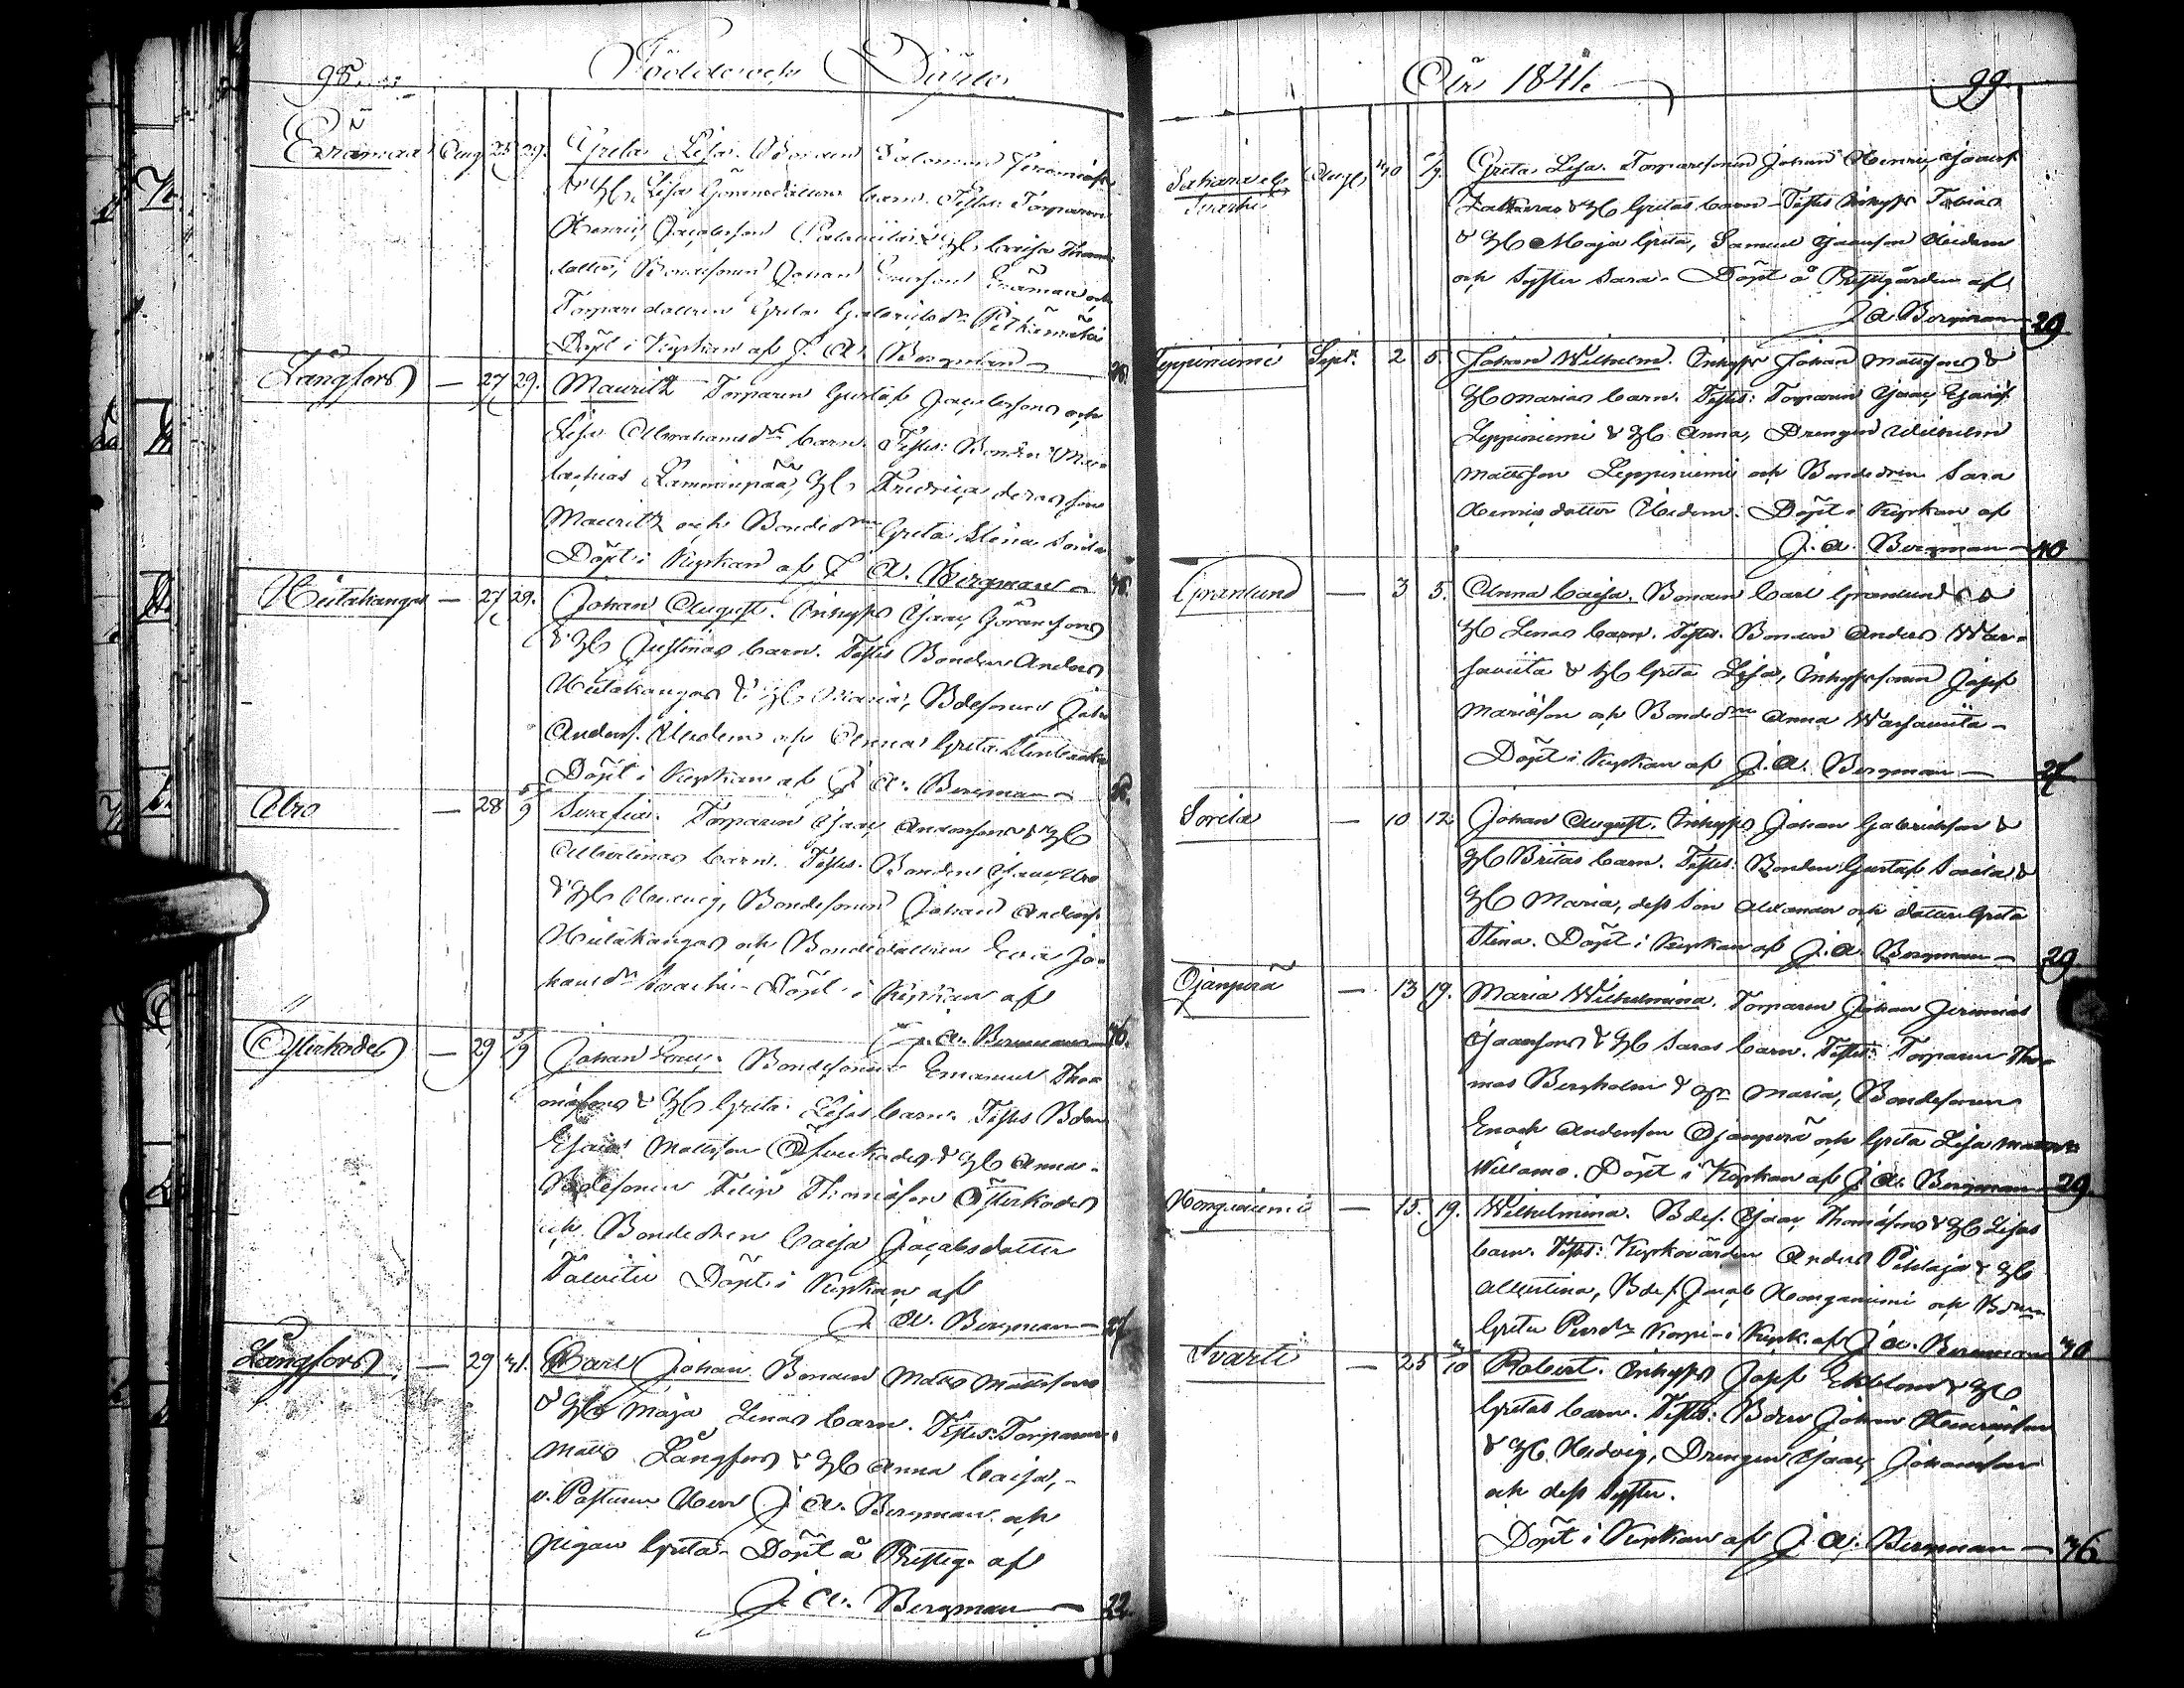 98.
Födde och Döpte
Erämaa Aug. 25 29. Greta Lisa. Bonden Salomon Jeremiæss.
& H. Lisa Göransdotters barn. Testes: Torparen
Henric Jacobsson & H. Caisa Thom.
dotter, Bondesonen Johan Ericsson Erämaa och
Torparedottren Greta Gabrielsdr Pitkämäki
Döpt i Kyrkan af J. A. Bergman
Långfors — 27 29. Mauritz Torparen Gustaf Jacobssons och
Lisa Abrahamsdrs barn. Testes: Bonden
Lamminpää, H. Fredrica deras son
Mauritz och Bondedrn Greta Stina Sorila
Döpt i Kyrkan af J. A. Bergman
Hietakangas — 27 29. Johan August. Inhyses Isaac Göranssons
& H. Justinas barn. Testes Bonden Anders
Hietakangas & H. Maria, Bdesonen Joh.
Anders. och Anna Greta
Döpt i Kyrkan af J. A. Bergman
Uro — 28 5/9 Serafia. Torparen Isaac Anderssons & H.
Albertinas barn. Testes. Bonden Isaac Uro
& H. Hedvig, Bondesonen Johan Anderss.
Hietakangas och Bondedottren Eva Jo-
hansdr Svarti. Döpt i Kyrkan af
J. A. Bergman 46.
Ylikodes — 29 5/9 Johan Bondesonen Emanuel Tho-
massons & H. Greta Lisas barn. Testes Bden
Esaias Mattsson & H. Anna.
Bdesonen Filip Thomasson
och Bondedren Caisa Jacobsdotter
Talvitie Döpt i Kyrkan af
J. A. Bergman 27
Långfors — 29 31. Carl Johan Bonden Matts Mattssons
& H. Maja Lenas barn. Testes. Torparen
Matts Långfors & H. Anna Caisa,
v. Pastoren Herr J. A. Bergman och
pigan Greta. Döpt å Prestg. af
J. A. Bergman — 22
År 1841.
99.
Svarti Aug. 30 5/9. Greta Lisa. Torparesonen Johan Henric Isaacs.
& H. Gretas barn. Testes Inhyss Tobias
& H. Maja Greta, Samuel Isaacson
och Syster Sara. Döpt å Prestgården af
J A Bergman 29
Leppiniemi Sept. 2 5. Johan Wilhelm. Inhyss Johan Mattssons &
H. Marias barn. Testes: Torparen Isaac Esaiæs.
Leppiniemi & H. Anna, Drengen Wilhelm
Mattsson Leppiniemi och Bondedrn Sara
Henricsdotter Döpt i Kyrkan af
J. A. Bergman 40
Granlund — 3 5. Anna Caisa. Bonden Carl Granlunds &
H. Lenas barn. Testes. Bonden Anders War-
saviita & H. Greta Lisa, Inhysessonen Josef
Mariæson och Bondedrn Anna Warsaviita
Döpt i Kyrkan af J. A. Bergman — 27
Sorila — 10 12 Johan August. Inhyses Johan Gabrielsson &
H. Britas barn. Testes. Bonden Gustaf Sorila &
H. Maria, dess Son Alexander och dotter Greta
Stina. Döpt i Kyrkan af J. A. Bergman — 29
Ojanperä — 13 19. Maria Wilhelmina. Torparen Johan Jeremias
Isaacsons & H. Saras barn. Testes. Torparen Tho-
mas Bergholm & H. Maria, Bondesonen
Enoch Andersson Ojanperä och Greta Lisa
Willamo. Döpt i Kyrkan af J. A. Bergman 29.
Honganiemi — 15. 19. Wilhelmina. Bdes. Isaac Thomæssons & H. Lisas
barn. Testes: Kyrkovärden Anders Pihlaja & H.
Albertina, Bdes. Jacob Honganiemi och Bdrn
Greta Korpi i Kyrk. af J. A. Bergman 40
Svarti — 25 3/10 Robert. Inhyses Josef Ekbloms & H.
Gretas barn. Testes: Bden Johan Henricsson
& H. Hedvig, Drengen Isaac Johansson
och dess Syster.
Döpt i Kyrkan af J. A. Bergman — 36